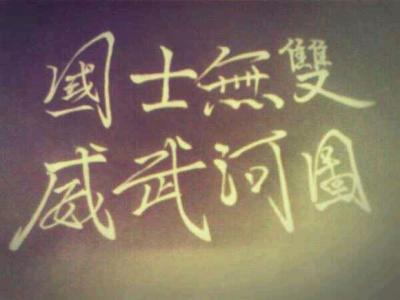 國士無雙
威武河圖